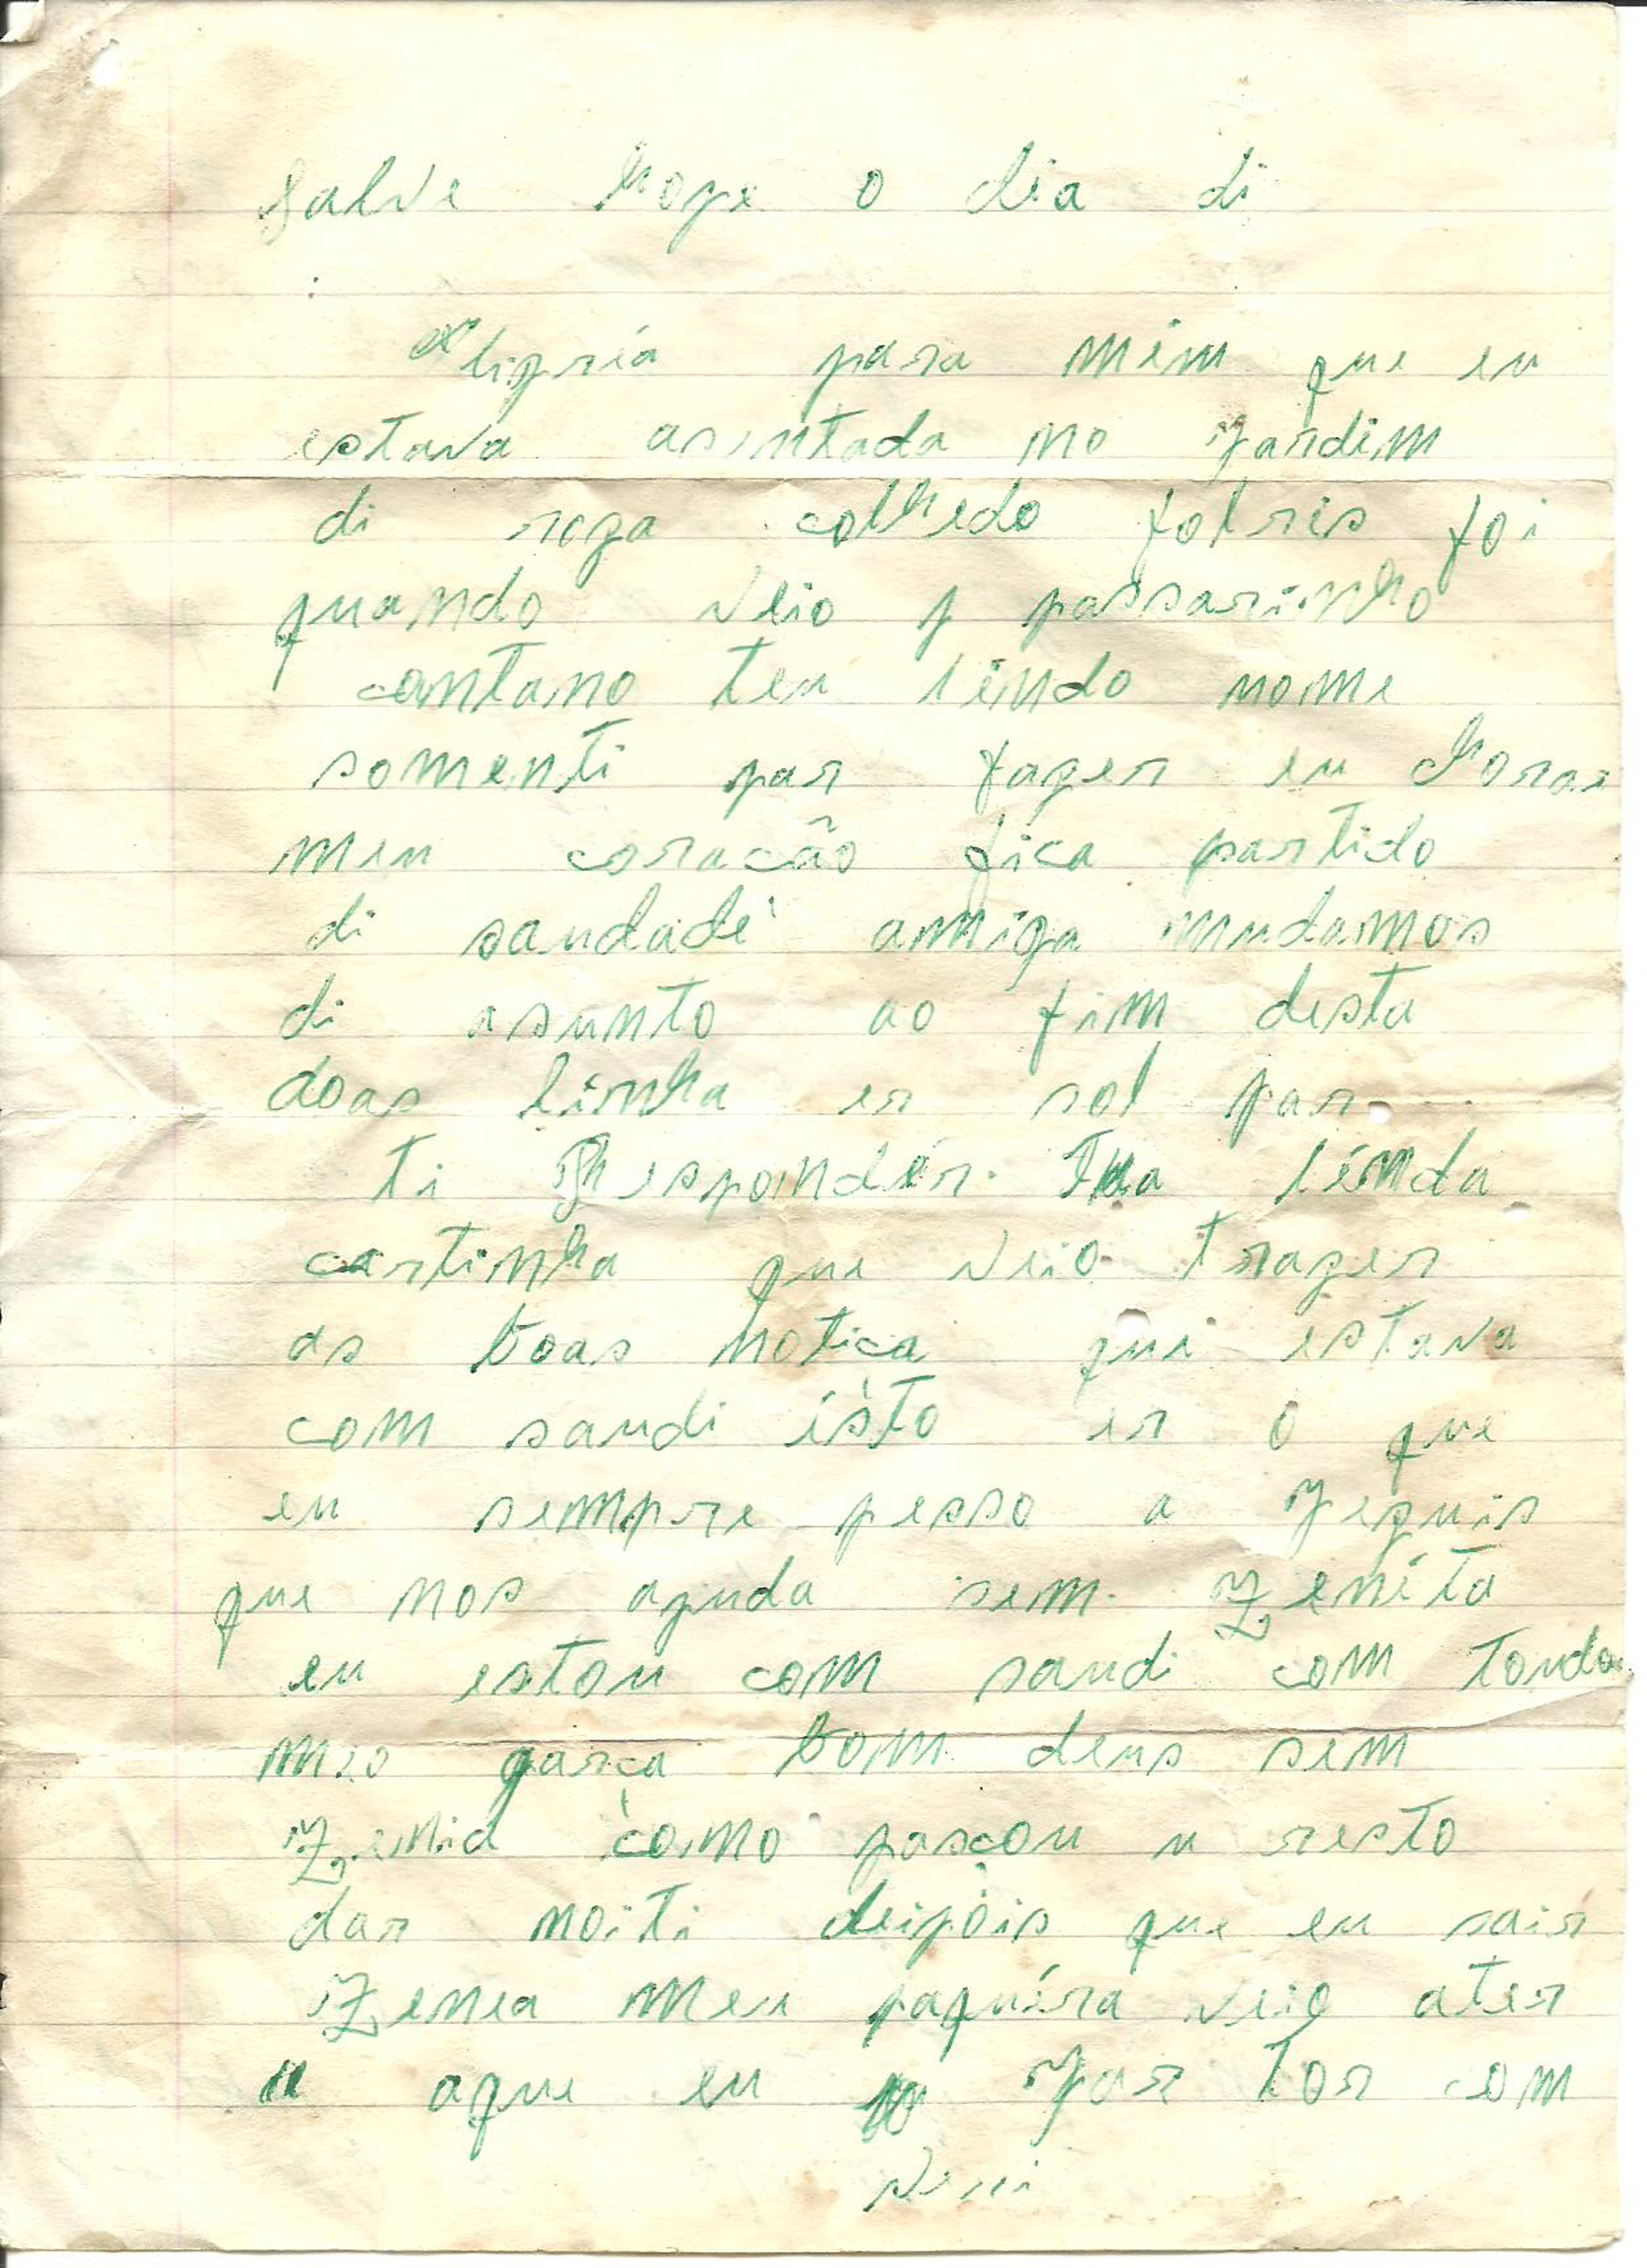 Salve hoge o dia di
aligria para mim que eu
estava asentada no jardim
di roza colhedo folris foi
quando veio p passarinho
cantano teu lindo nome
somenti par fazer eu chorar
meu coracão fica partido
di saudade amiga mudamos
di asunto ao fim desta
doas linha er sol par
ti Responder. Tua linda
cartinha que veio trazer
as boas notica que estava
com saudi isto er o que
eu sempre pesso a Jezuis
que nos ajuda sem Zenita
eu estou com saudi com touda
garça bom deus sem
como pasçou u resto
dar noiti deipois que eu sair
Zenea meu paquira veio ater
aque eu jar tor com